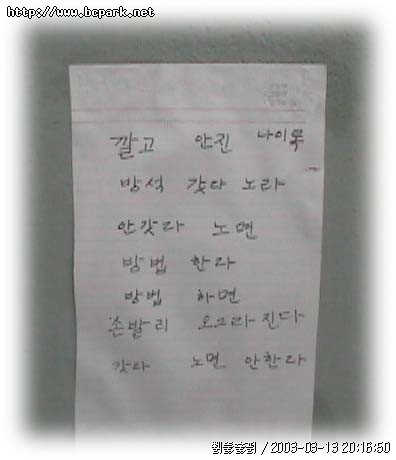 http://www.bcpark.net
깔고 안진 나이롱
방석 갓다 노라
안갓다 노면
방법 한다
방법 하면
손발리 오그라진다
갓다 노면 안한다
/ 2003-03-13 20:16:50